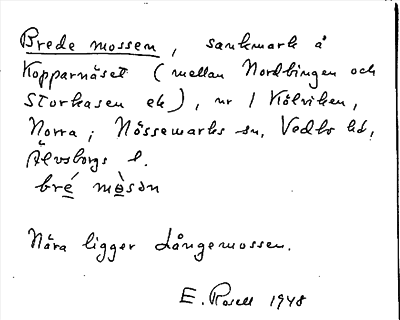 Brede mossen, sankmark å
Kopparnäset (mellan Nordbingen och
Storkasen etc), nr 1 Kölviken,
Norra; Nössemarks sn, Vedbo hd,
Älvsborgs l.
bré mòsən
Nära ligger Långemossen.
E. Rosell 1948